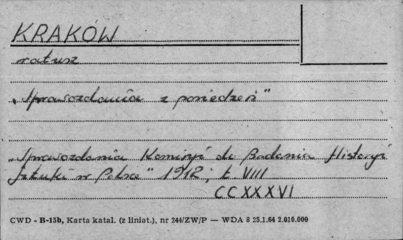 KRAKÓW
ratusz
„Sprawozdania z posiedzeń"
„Sprawozdania Komisyi do Badania Historyi
Sztuki w Polsce" 1912, t. VIII
CCXXXVI
CWD - B-15b, Karta katal. (z liniat.), nr 244/ZW/P — WDA 8 25.1.64 2.010.000